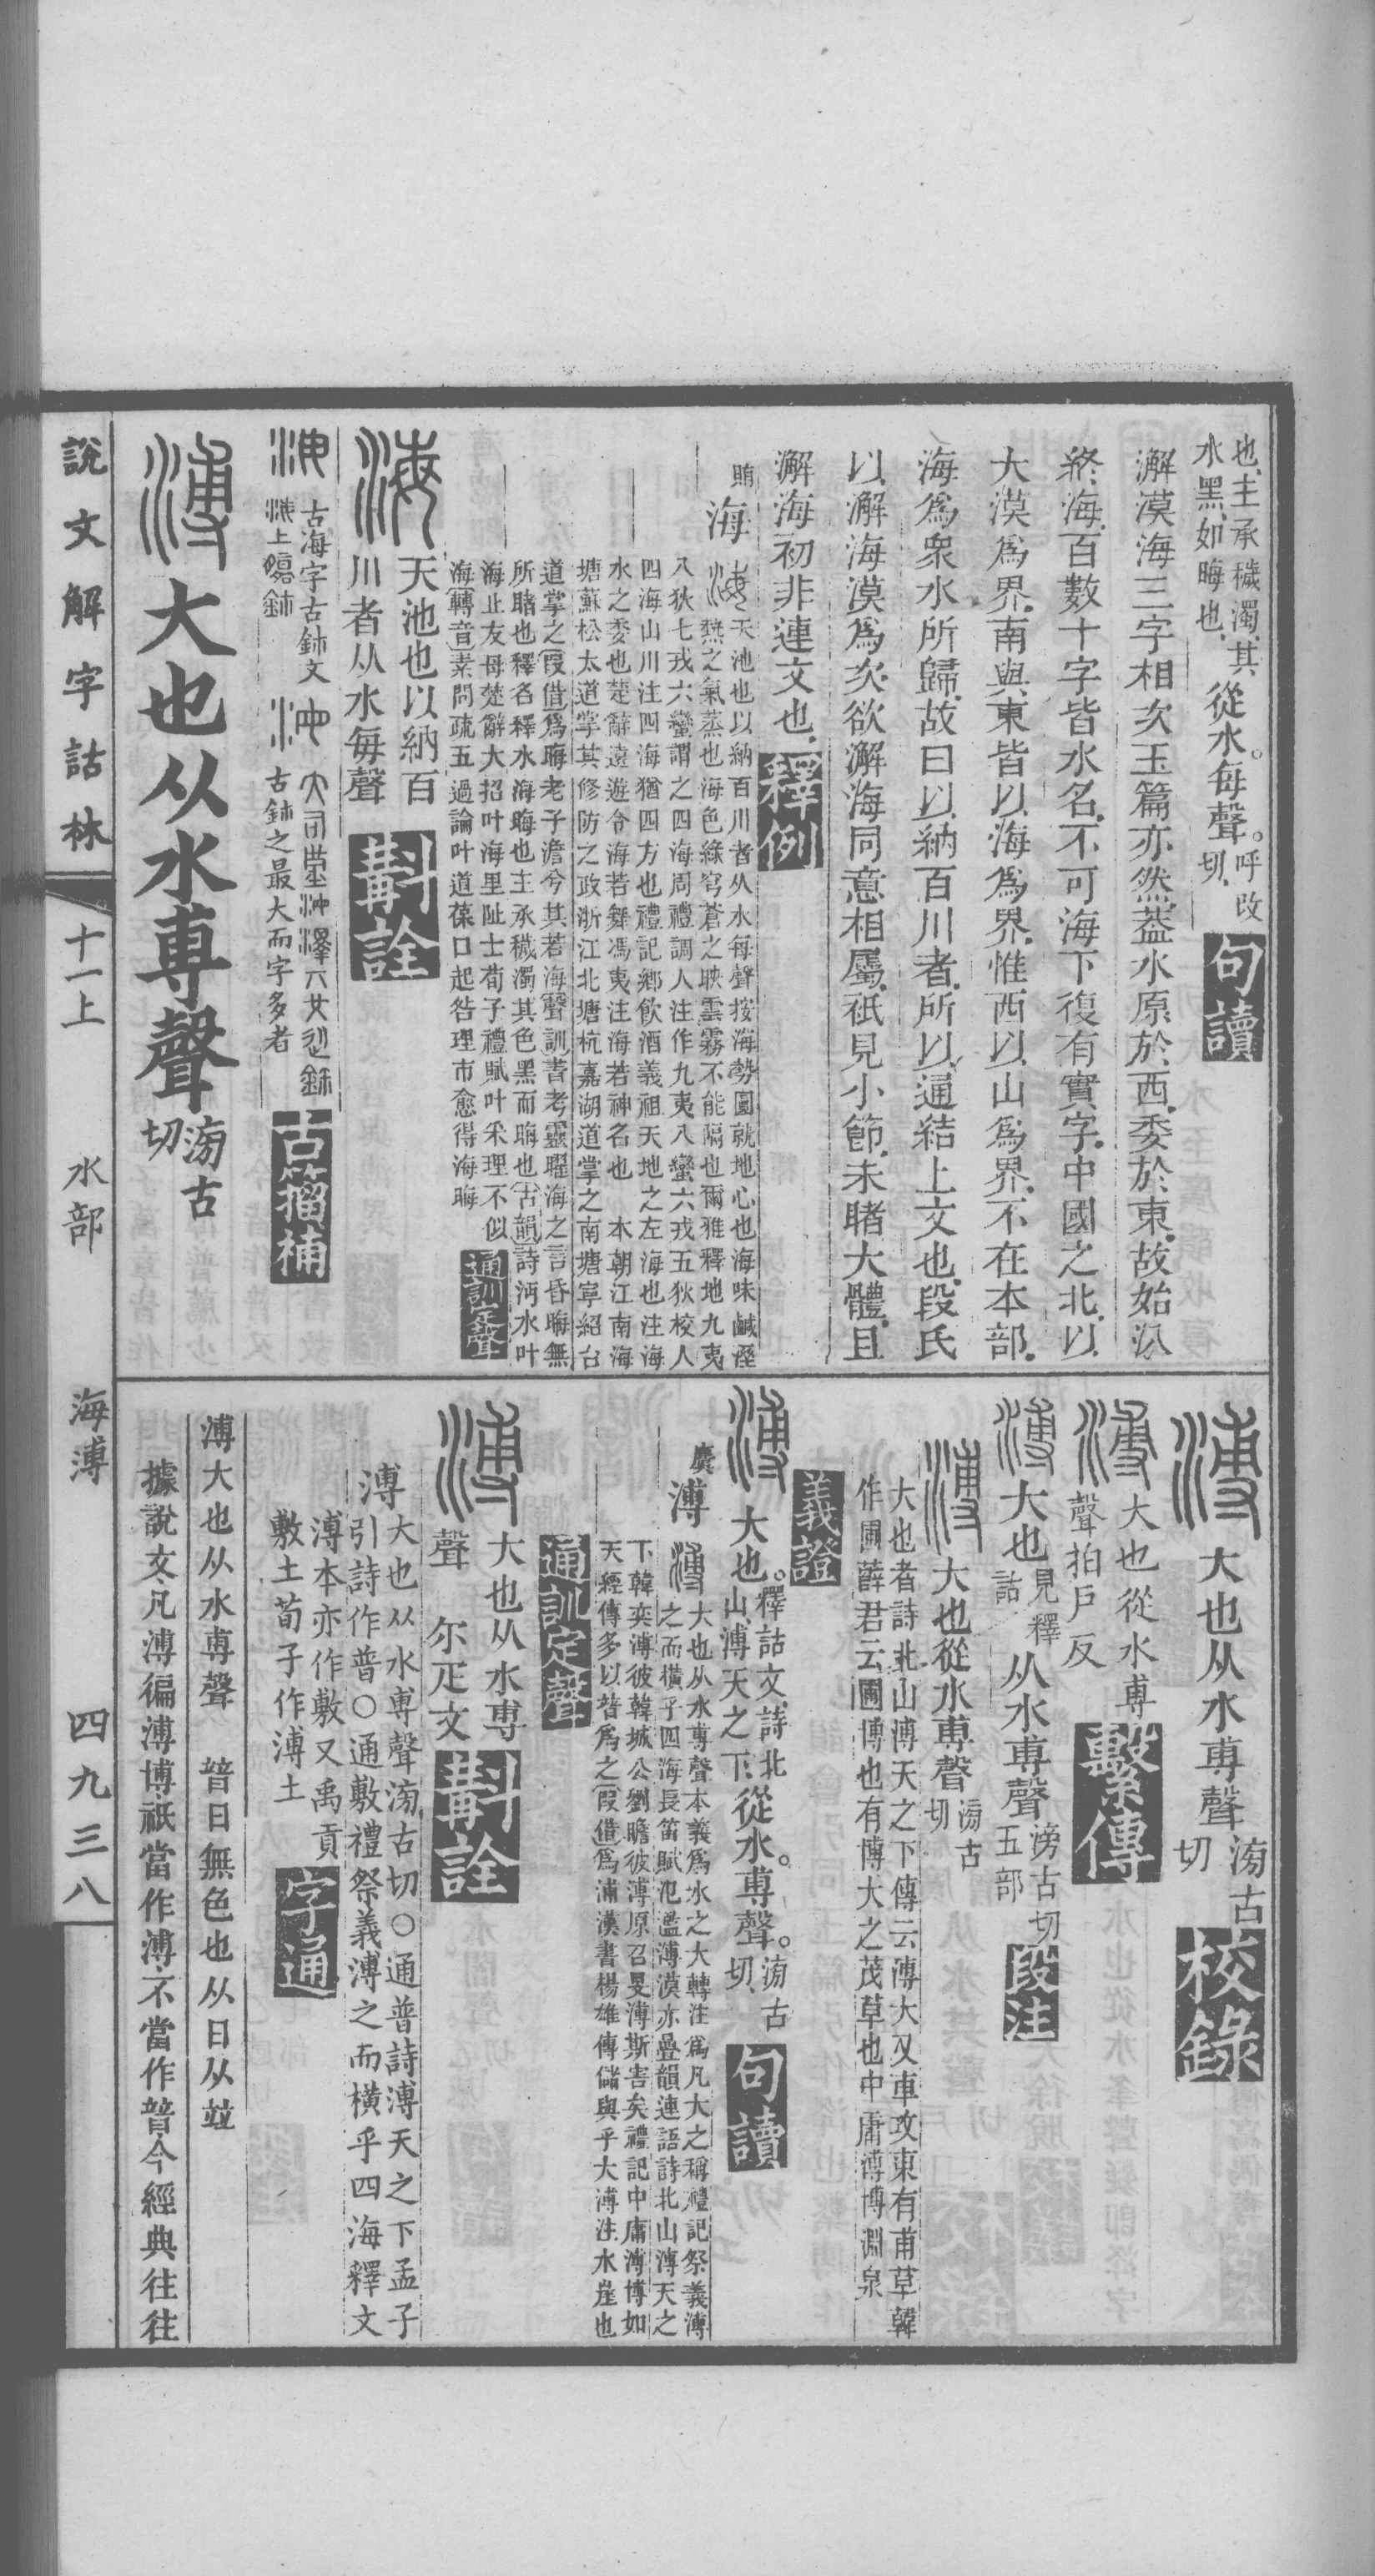 也。主承穢濁。其
水黑。如晦也。
從水。每聲。
呼改
切。
句讀
澥漠海三字相次玉篇亦然葢水原於西委於東故始㲼
終海百數十字皆水名不可海下復有實字中國之北以
大漠為界南與東皆以海為界惟西以山為界不在本部
海爲衆水所歸故曰以納百川者所以通結上文也段氏
以澥海漠爲次欲澥海同意相屬祇見小節未睹大體且
澥海初非連文也
釋例
賄
海
天池也以納百川者从水每聲按海勢圓就地心也海味鹹溼
熱之氣蒸也海色綠穹蒼之映雲霧不能隔也爾雅釋地九夷
八狄七戎六蠻謂之四海周禮調人注作九夷八蠻六戎五狄校人
四海山川注四海猶四方也禮記鄉飲酒義祖天地之左海也注海
水之委也楚辭遠遊令海若舞馮夷注海若神名也 本朝江南海
塘蘇松太道掌其修防之政浙江北塘杭嘉湖道掌之南塘寧紹台
道掌之叚借爲晦老子澹兮其若海聲訓書考靈曜海之言昏晦無
所睹也釋名釋水海晦也主承穢濁其色黑而晦也古韻詩沔水叶
海止友母楚辭大招叶海里阯士荀子禮賦叶采理不似
海轉音素問疏五過論叶道葆口起咎理市愈得海晦
通訓定聲
海
天池也以納百
川者从水每聲
斠詮
古海字古鉨文
上鉨
古鉨之最大而字多者
古籀補
溥
大也从水尃聲
滂古
切
說文解字詁林
十一上
水部
海溥
四九三八
溥
大也从水尃聲
滂古
切
校錄
溥
大也從水尃
聲拍戶反
繫傳
溥
大也
見釋
詁
从水尃聲
滂古切
五部
段注
溥
大也從水尃聲
滂古
切
大也者詩北山溥天之下傳云溥大又車攻東有甫草韓
作圃薛君云圃博也有博大之茂草也中庸溥博淵泉
義證
溥
大也。
釋詁文。詩北
山。溥天之下。
從水。尃聲。
滂古
切。
句讀
虞
溥
大也从水尃聲本義爲水之大轉注爲凡大之稱禮記祭義溥
之而橫乎四海長笛賦氾濫溥漠亦疊韻連語詩北山溥天之
下韓奕溥彼韓城公劉瞻彼溥原召旻溥斯害矣禮記中庸溥博如
天經傳多以普爲之叚借爲浦漢書楊雄傳儲與乎大溥注水厓也
通訓定聲
溥
大也从水尃
聲 尒疋文
斠詮
溥
大也从水尃聲滂古切○通普詩溥天之下孟子
引詩作普○通敷禮祭義溥之而橫乎四海釋文
溥本亦作敷又禹貢
敷土荀子作溥土
字通
溥大也从水尃聲 普日無色也从日从竝
據說文凡溥徧溥博祇當作溥不當作普今經典往往